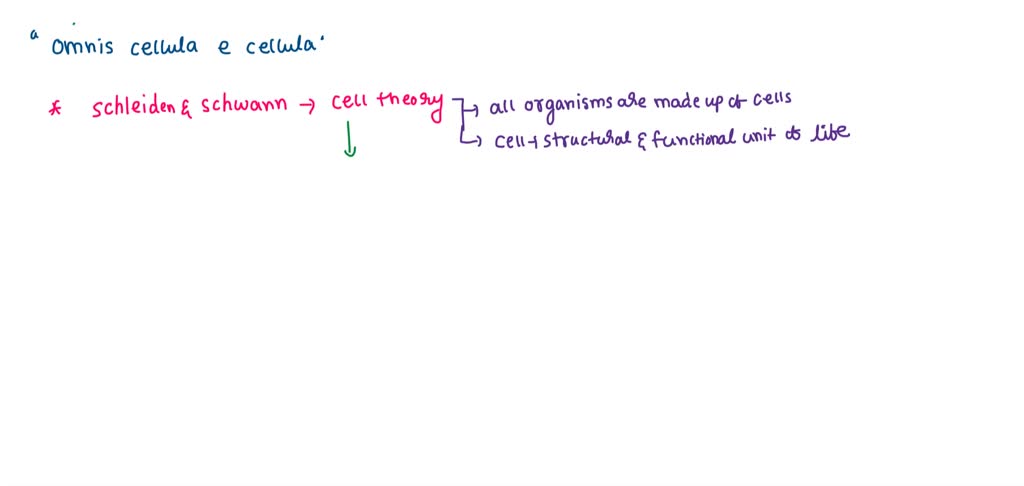 "omnis cellula e cellula"
* schleiden & schwann → cell theory → all organisms are made up of cells
↳ cell → structural & functional unit of life